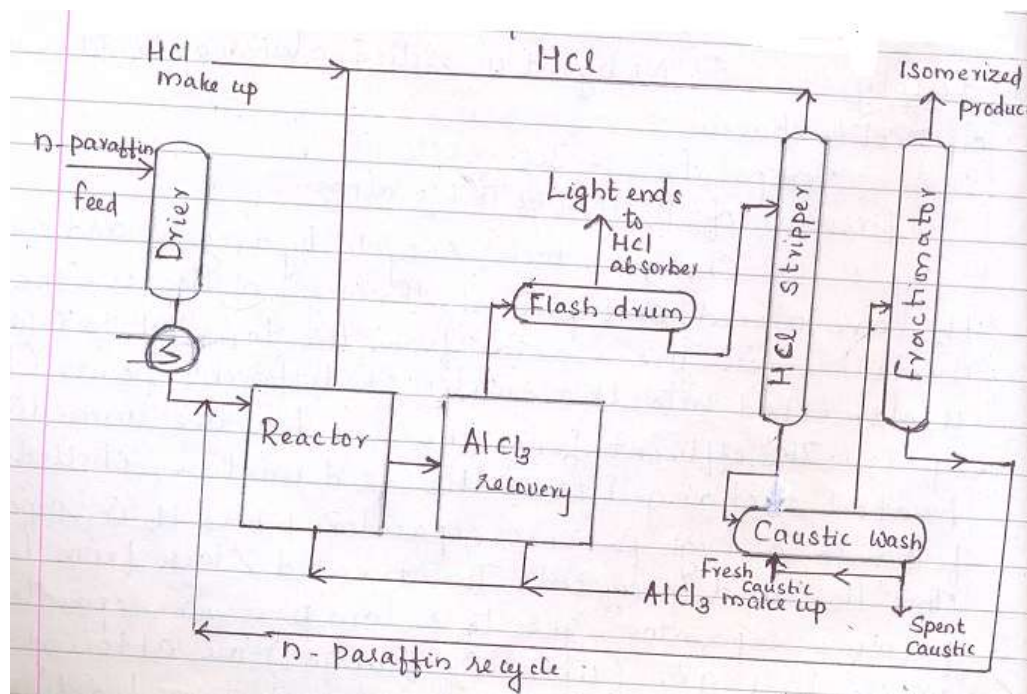 HCl
make up
HCl
Isomerized
produc
n-paraffin
feed
Drier
Light ends
to
HCl
absorber
Flash drum
HCl Stripper
Fractionator
Reactor
AlCl3
recovery
Caustic wash
Fresh
caustic
AlCl3 make up
Spent
Caustic
n-paraffin recycle